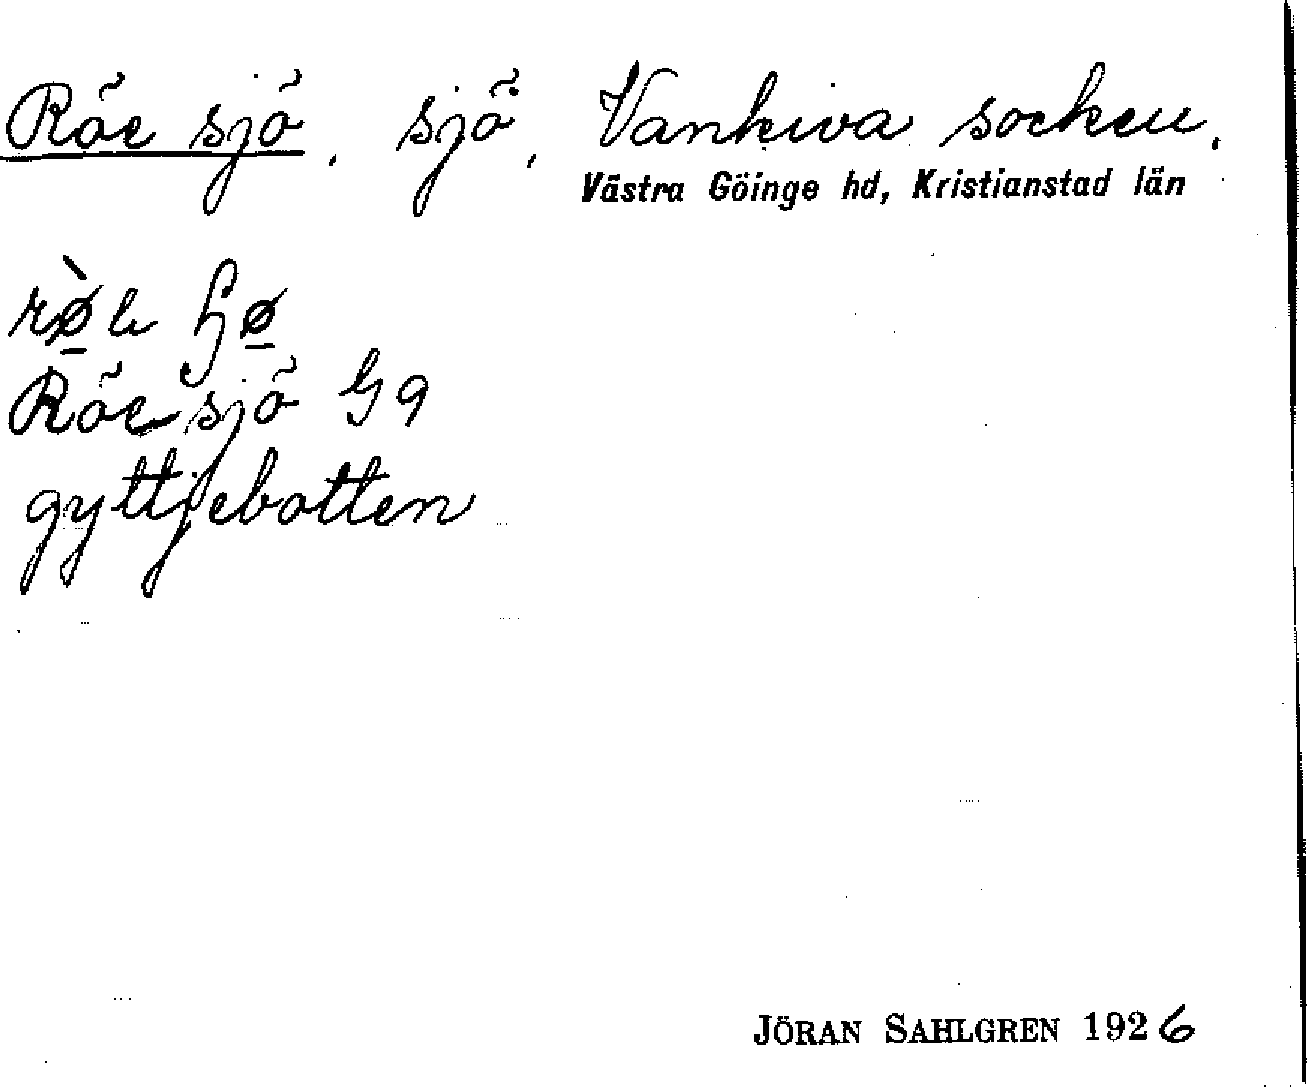 Röe sjö, sjö, Vankiva socken.
Västra Göinge hd, Kristianstad län
Röe sjö G9
gyttjebotten
JÖRAN SAHLGREN 1926